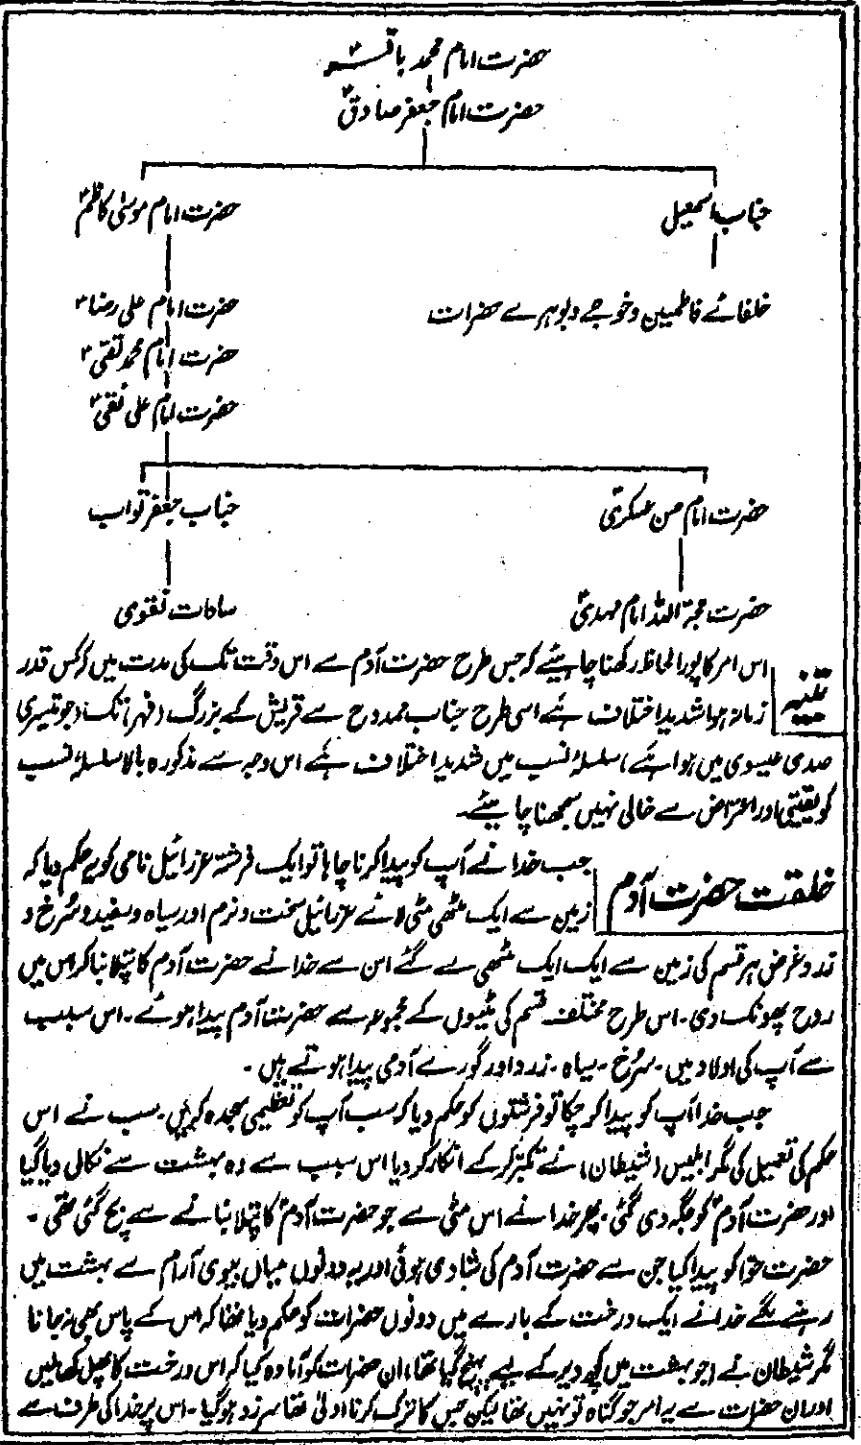 حضرت امام محمد باقرؑ
حضرت امام جعفر صادقؑ
جناب اسمعیل
حضرت امام موسیٰ کاظمؑ
خلفائے فاطمیین و خوجے و بوہرے حضرات
حضرت امام علی رضاؑ
حضرت امام محمد تقیؑ
حضرت امام علی نقیؑ
حضرت امام حسن عسکریؑ
جناب جعفر تواب
حضرت حجۃ اللہ امام مہدیؑ
سادات نقوی
تنبیہ
اس امر کا پورا لحاظ رکھنا چاہیئے کہ جس طرح حضرت آدم سے اس وقت تک کی مدت میں کہ کس قدر
زمانہ ہوا شدید اختلاف ہے اسی طرح جناب ممدوح سے قریش کے بزرگ (فہر) تک (جو تیسری
صدی عیسوی میں ہوا ہے) سلسلۂ نسب میں شدید اختلاف ہے اس وجہ سے مذکورہ بالا سلسلۂ نسب
کو یقینی اور اعتراض سے خالی نہیں سمجھنا چاہیئے۔
خلقت حضرت آدم
جب خدا نے آپ کو پیدا کرنا چاہا تو ایک فرشتہ عزرائیل نامی کو یہ حکم دیا کہ
زمین سے ایک مٹھی مٹی لائے عزرائیل سخت و نرم اور سیاہ و سفید و سُرخ و
زرد غرض ہر قسم کی زمین سے ایک ایک مٹھی لے گئے ان سے خدا نے حضرت آدم کا پتلا بنا کر اس میں
روح پھونک دی۔ اس طرح مختلف قسم کی مٹیوں کے مجموعہ سے حضرت آدم پیدا ہوئے۔ اس سبب
سے آپ کی اولاد میں۔ سُرخ۔ سیاہ۔ زرد اور گورے آدمی پیدا ہوتے ہیں۔
جب خدا آپ کو پیدا کر چکا تو فرشتوں کو حکم دیا کہ سب آپ کو تعظیمی سجدہ کریں۔ سب نے اس
حکم کی تعمیل کی مگر ابلیس (شیطان) نے تکبّر کر کے انکار کر دیا اس سبب سے وہ بہشت سے نکالی دیا گیا
اور حضرت آدمؑ کو جگہ دی گئی۔ پھر خدا نے اس مٹی سے جو حضرت آدمؑ کا پتلا بنانے سے بچ گئی تھی۔
حضرت حوّا کو پیدا کیا جن سے حضرت آدم کی شادی ہوئی اور یہ دونوں میاں بیوی آرام سے بہشت میں
رہنے لگے خدا نے ایک درخت کے بارے میں دونوں حضرات کو حکم دیا تھا کہ اس کے پاس بھی نہ جانا
مگر شیطان نے (جو بہشت میں کچھ دیر کے لیے پہنچ گیا تھا) ان حضرات کو آمادہ کیا کہ اس درخت کا پھل کھالیں
اور ان حضرات سے یہ امر جو گناہ تو نہیں تھا لیکن جس کا ترک کرنا اولیٰ تھا سرزد ہو گیا۔ اس پر خدا کی طرف سے